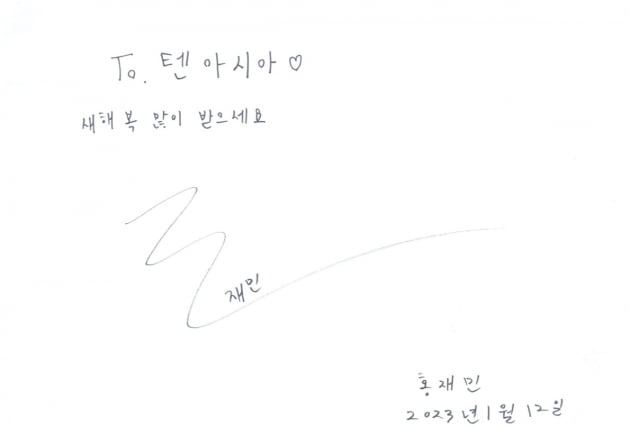 To. 텐아시아♡
새해 복 많이 받으세요
재민
홍재민
2023년 1월 12일